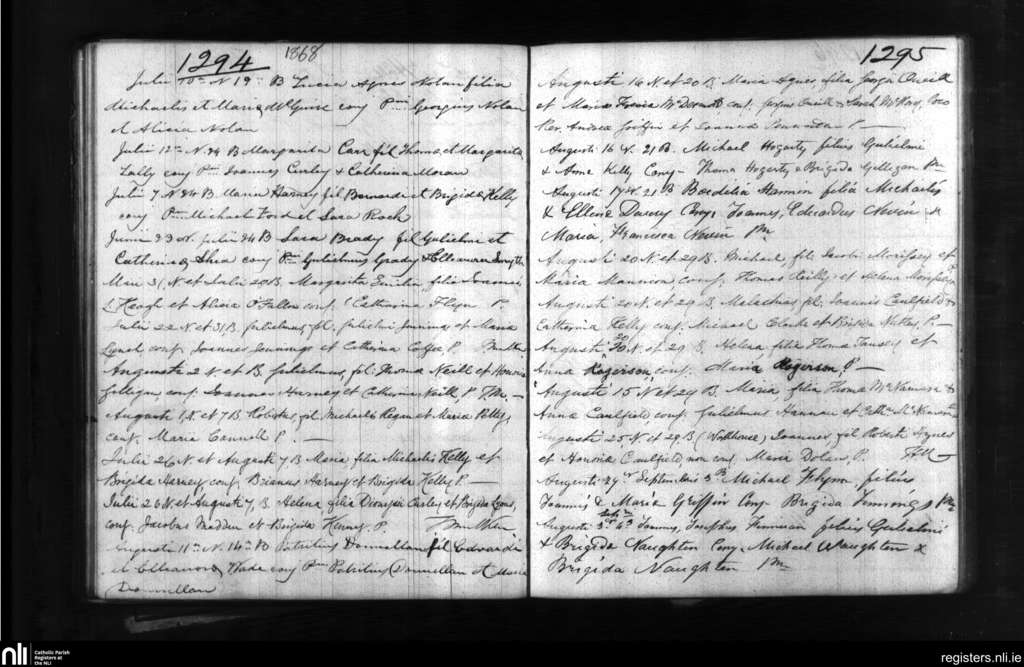 1294
1868
Julii 10th N 19th B Lucia Agnes Nolan filia
Michaelis et Maria McGuire conj Georgius Nolan
et Alicia Nolan
Julii 12th N 24 B Margarita Carr fil Thoma et Margarita
Lally conj Joannes Curley & Catherina Moran
Julii 7 N 24 B Maria Harney fil Bernardi et Brigida Kelly
conj Michael Ford et Sara Roch
Junii 23 N. Julii 24 B Sara Brady fil Gulielmi et
Catherina Shea conj Gulielmus Grady & Elleanora Smyth
Maii 31 N. et Julii 20 B. Margarita filia Joannis
Keogh et Alicia O'Fallon conj. Catherina Flyn P.
Julii 22 N. et 31 B. Gulielmus, fil. Gulielmi Jennings et Maria
Lynch conj. Joannes Jennings et Catherina Coffee, P.
Augusti 2 N. et B. Gulielmus, fil. Thoma Neill et Honoria
conj. Joannes Harney et Catherina Neill, P.
Augusti 1, N. et 7 B. fil. Michaelis Regan et Maria
conj. Maria P.
Julii 26 N. et Augusti 7, B Maria filia Michaelis Kelly et
Brigida Harney conj. Brianus Harney et Brigida Kelly P.
Julii 26 N. et Augusti 7, B. Helena, filia Dionysii Curley et Brigida Lyons,
conj. Jacobus Madden et Brigida P.
Augusti 11th N. 14th B Patritius Donnellan fil Edwardi
et Elleanora Wade conj Patritius Donnellan et Maria
Donnellan
1295
Augusti 16 N. et 20 B. Maria Agnes, filia Georgii
et Maria McDermott conj. & Sarah
Rev. Andrea et Joanna P.
Augusti 16 N. 21 B. Michael Hogarty filius Gulielmi
& Anne Kelly Conj. Thoma Hogerty & Brigida Gilligan Pm
Augusti 17 N. 21 B Bedelia Hannin filia Michaelis
& Ellene Darcy Conj. Joannes, Eduardus Nevin &
Maria, Francisca Nevin Pm
Augusti 20 N. et 29 B. Michael, fil. Jacobi Morissey et
Maria Mannion conj. Thomas Reilly et Helena
Augusti 20 N. et 29 B. fil. Joannis Caulfield &
Catherina Kelly conj. Michael Clarke et P.
Augusti 20 N. et 29 B. Helena, filia Thoma et
Anna Rogerson conj. Maria Rogerson P.
Augusti 15 N. et 29 B. Maria, filia Thoma McNamara &
Anna Caulfield, conj. Gulielmus Hannan et Cath. McNamara
Augusti 25 N. et 29 B. (Workhouse) Joannes, fil Roberti Hynes
et Honoria Caulfield, non conj. Maria Dolan, P.
Augusti 29 Septembris 3d B Michael Flynn filius
Joannis & Maria Griffin Conj Brigida Jennings Pm
Augusti 3d Joannes, Josephus Finneran filius Gulielmi
& Brigida Naughten Conj. Michael Naughten &
Brigida Naughten Pm
nli
Catholic Parish
Registers at
the NLI
registers.nli.ie